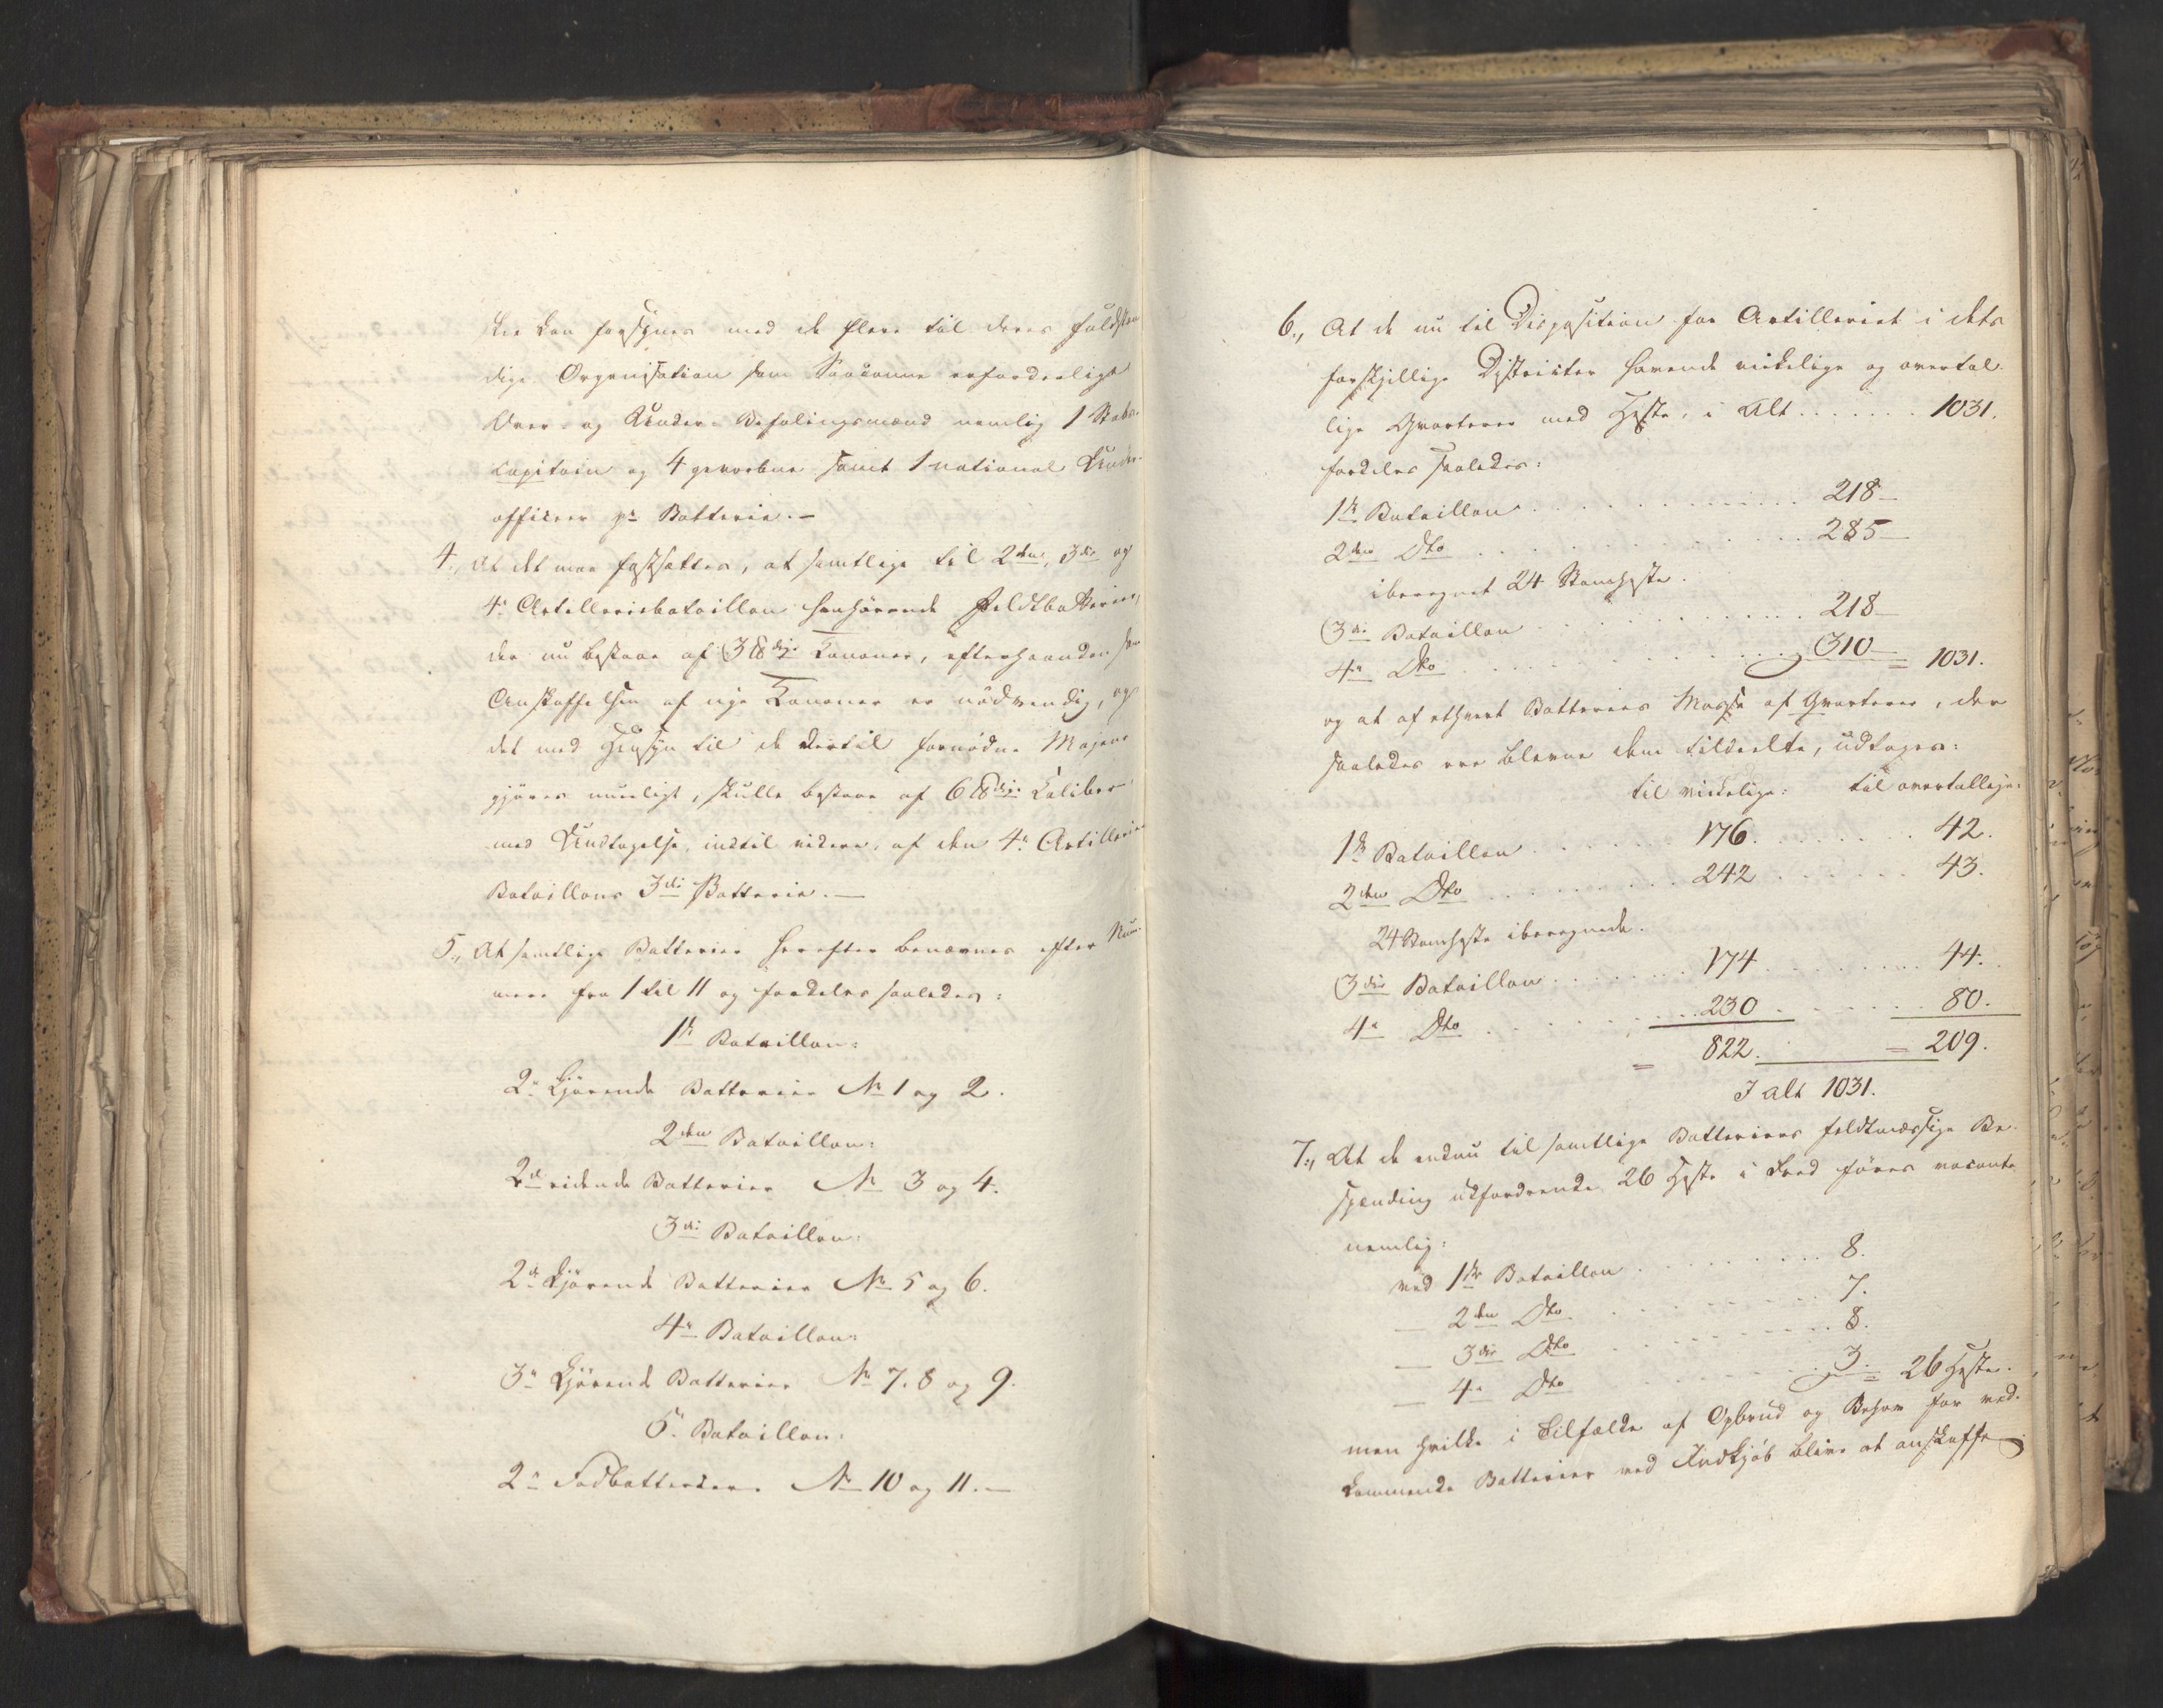 kee kan forsynes med de flere til deres fuldstæn
dige Organisation som Saadanne erforderlige
Over- og Under-Befalingsmænd nemlig 1 Stabs-
capitain og 4 gevorbne samt 1 national Under-
officeer pr Batterie.—
4., At det maa fastsættes, at samtlige til 2den, 3die og
4e Artilleriebataillon henhörende Feldtbatterier,
der nu bestaae af 3 ℔dige Kanoner, efterhaanden som
Anskaffelsen af nye Kanoner er nödvendig, og
det med Hensyn til de dertil fornödne Magasin
gjöres mueligt, skulle bestaae af 6 ℔dige Caliber
med Undtagelse, indtil videre, af den 4e Artillerie
Bataillons 3die Batterie.—
5., At samtlige Batterier herefter benævnes efter Num-
mere fra 1 til 11 og fordeles saaledes:
1te Bataillon:
2e Kjörende Batterier No 1 og 2.
2den Bataillon:
2de ridende Batterier No 3 og 4.
3die Bataillon:
2de Kjörende Batterier No 5 og 6.
4e Bataillon:
3e Kjörende Batterier No 7. 8 og 9.
5e Bataillon:
2e Fodbatterier No 10 og 11.—
6., At de nu til Disposition for Artilleriet i dets
forskjellige Districter havende virkelige og overtal-
lige Qvarterer med Heste, i Alt ...... 1031.
fordeles saaledes:
1te Bataillon ............ 218—
2den Dto ............ 285—
iberegnet 24 Stamheste.
3die Bataillon ............ 218—
4e Dto ............ 310— = 1031.
og at af ethvert Batteries Masse af Qvarterer, der
saaledes ere blevne dem tildeelte, udtages:
til virkelige: til overtallige:
1te Bataillon ...... 176. ...... 42.
2den Dto ...... 242 ...... 43.
24 Stamheste iberegnede.
3die Bataillon ...... 174 ...... 44.
4e Dto ...... 230 ...... 80.
= 822. = 209.
I alt 1031.
7., At de endnu til samtlige Batteriers feldtmæssige Be-
spænding udfordrende 26 Heste i Fred föres vacante
nemlig:
ved 1te Bataillon ...... 8.
— 2den Dto ...... 7.
— 3die Dto ...... 8.
— 4e Dto ...... 3. = 26 Heste.
men hvilke i Tilfælde af Opbrud og Behov for ved-
kommende Batterier ved Indkjöb blive at anskaffe.